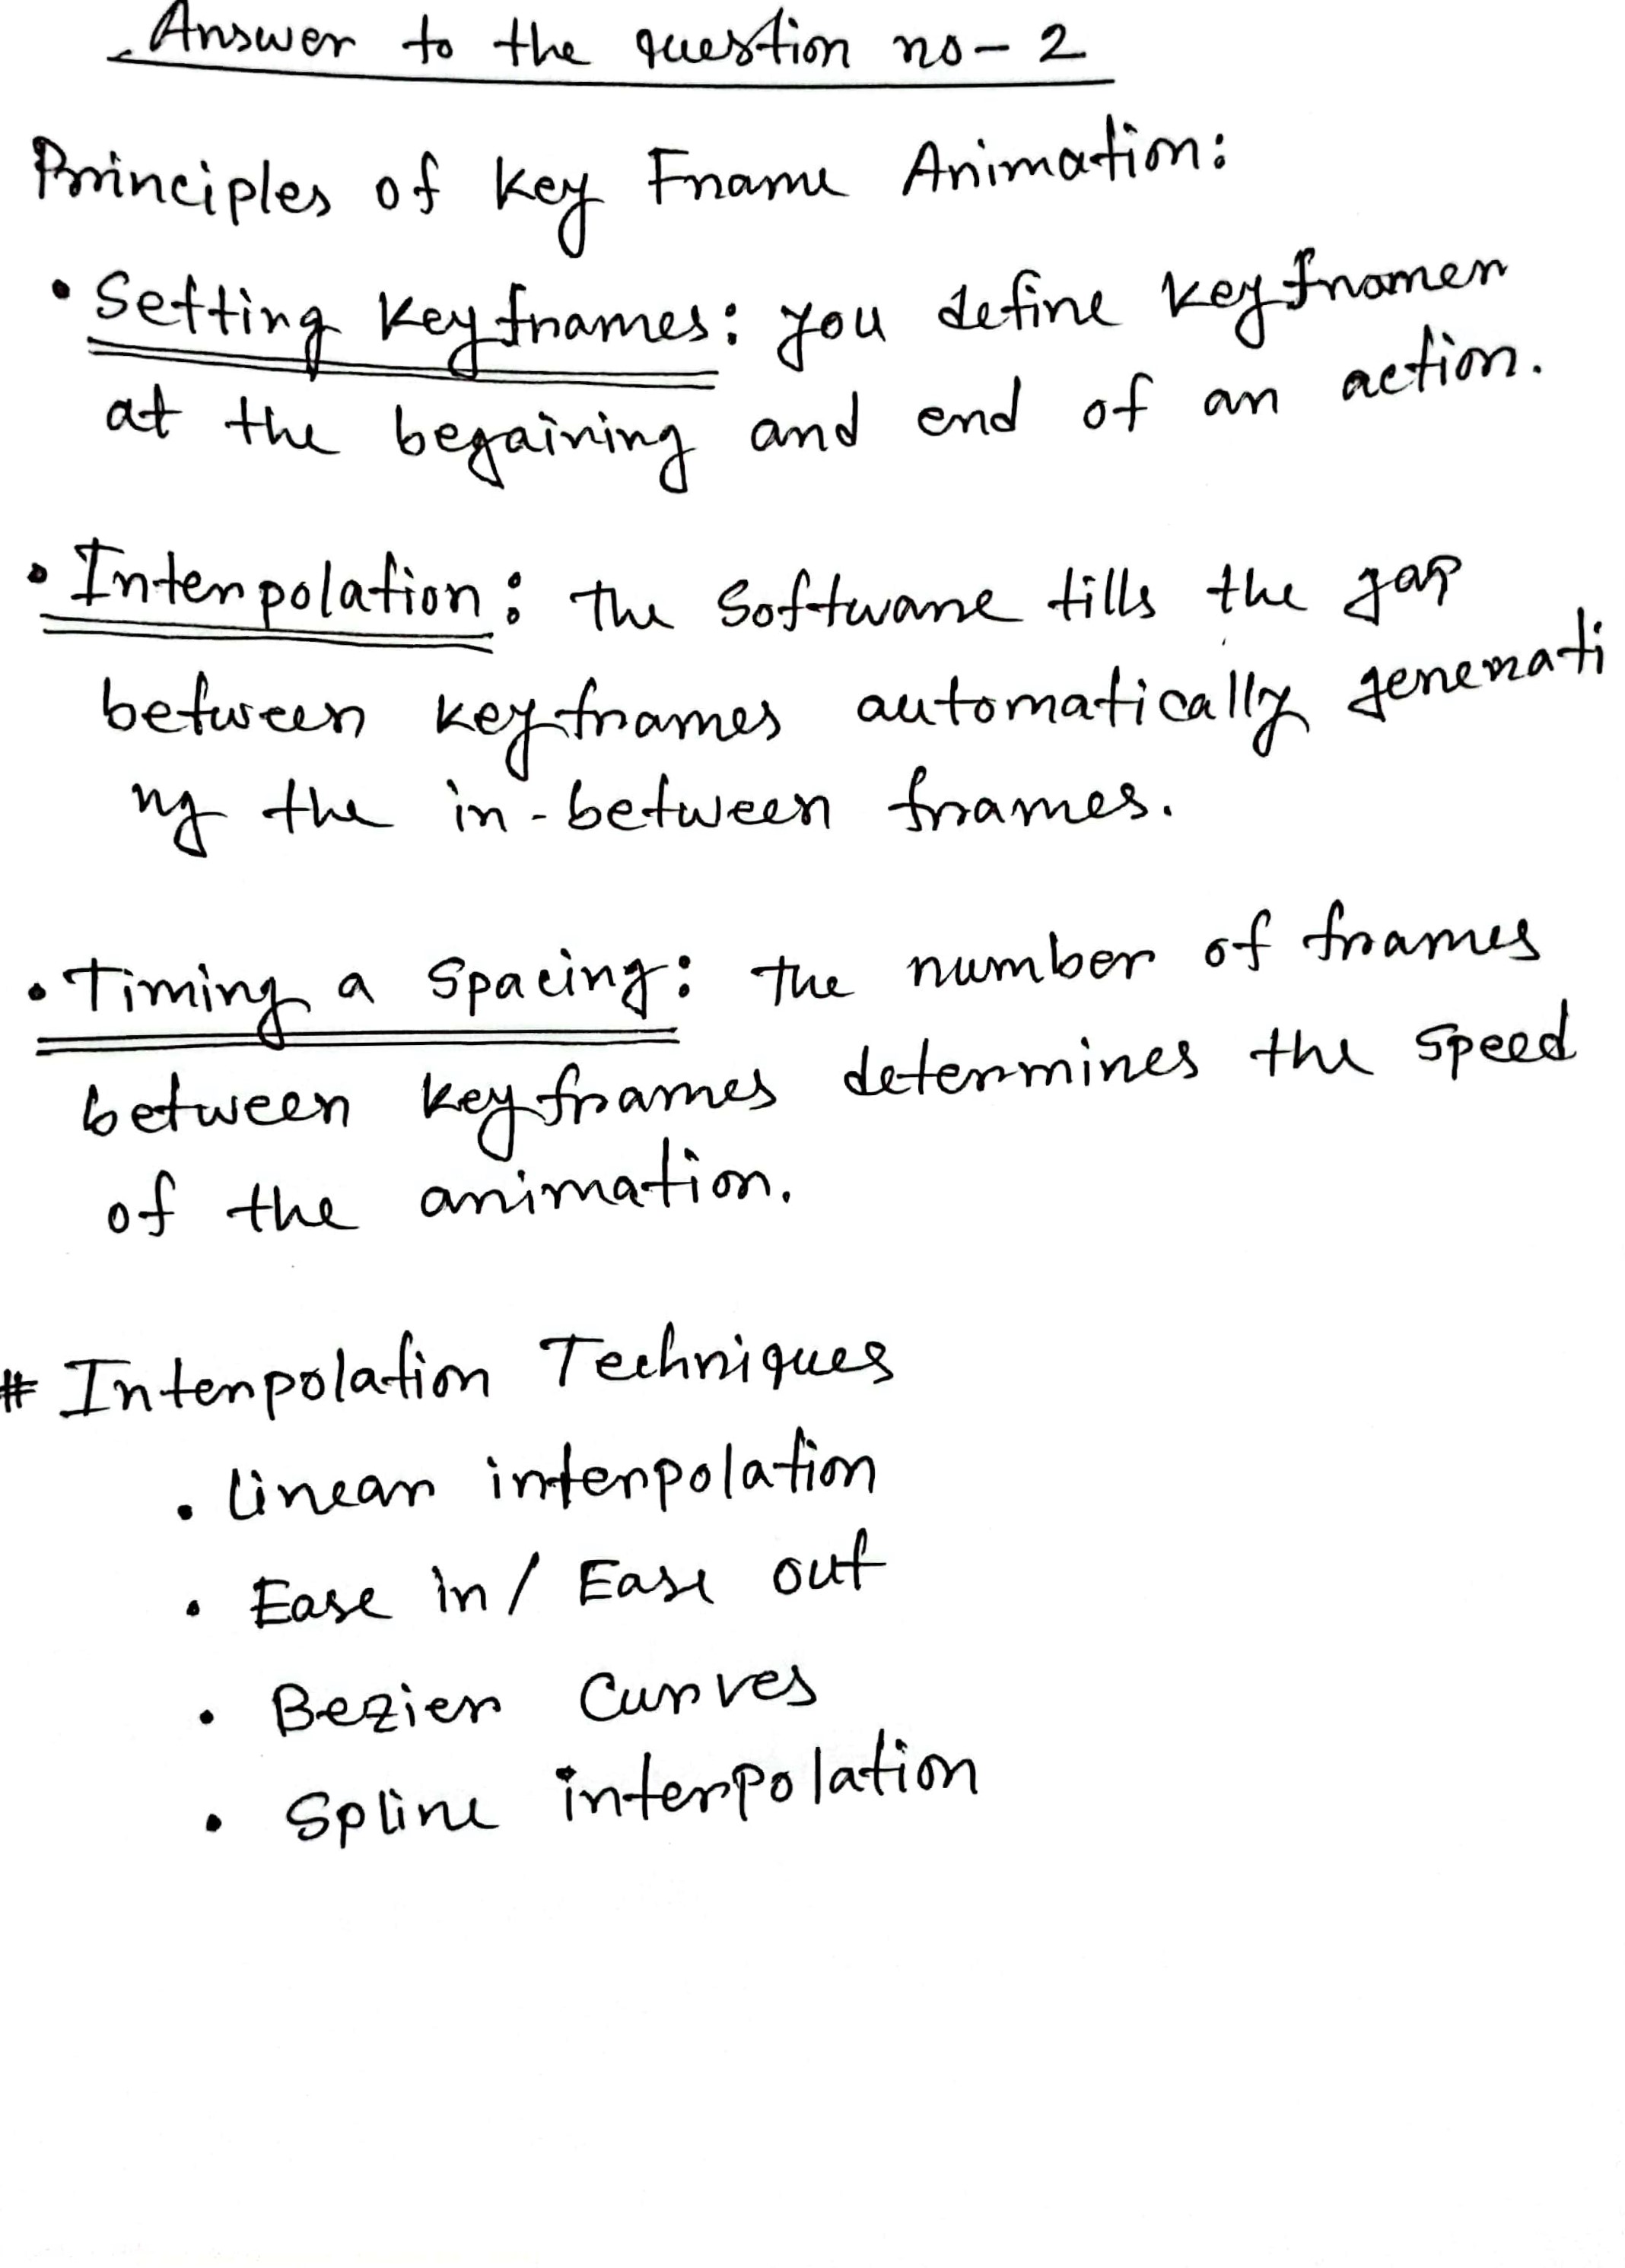 Answer to the question no- 2
Principles of Key Frame Animation:
• Setting Keyframes: you define keyframer
at the begaining and end of an action.
• Interpolation: the Software fills the gap
between keyframes automatically generati
ng the in-between frames.
• Timing a Spacing: the number of frames
between keyframes determines the speed
of the animation.
# Interpolation Techniques
• linear interpolation
• Ease in/ Ease out
• Bezier Curves
• Spline interpolation